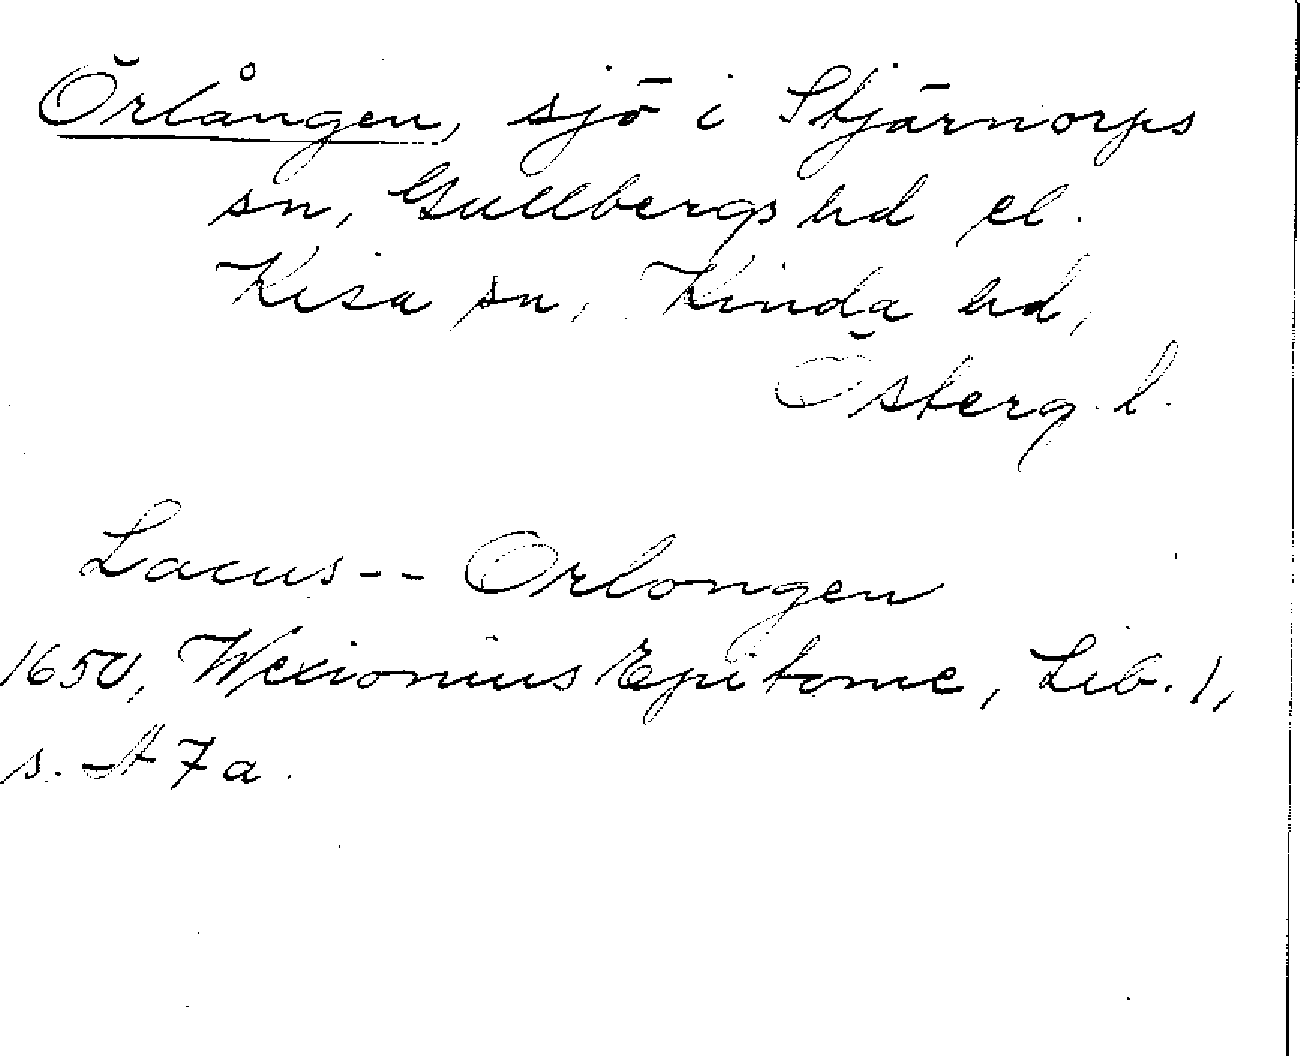 Örlången, sjö i Stjärnorps
sn, Gullbergs hd el.
Kisa sn, Kinda hd,
Österg. l.
Lacus-- Orlongen
1650, Wexionius Epitome, Lib. 1,
s. A 7 a.